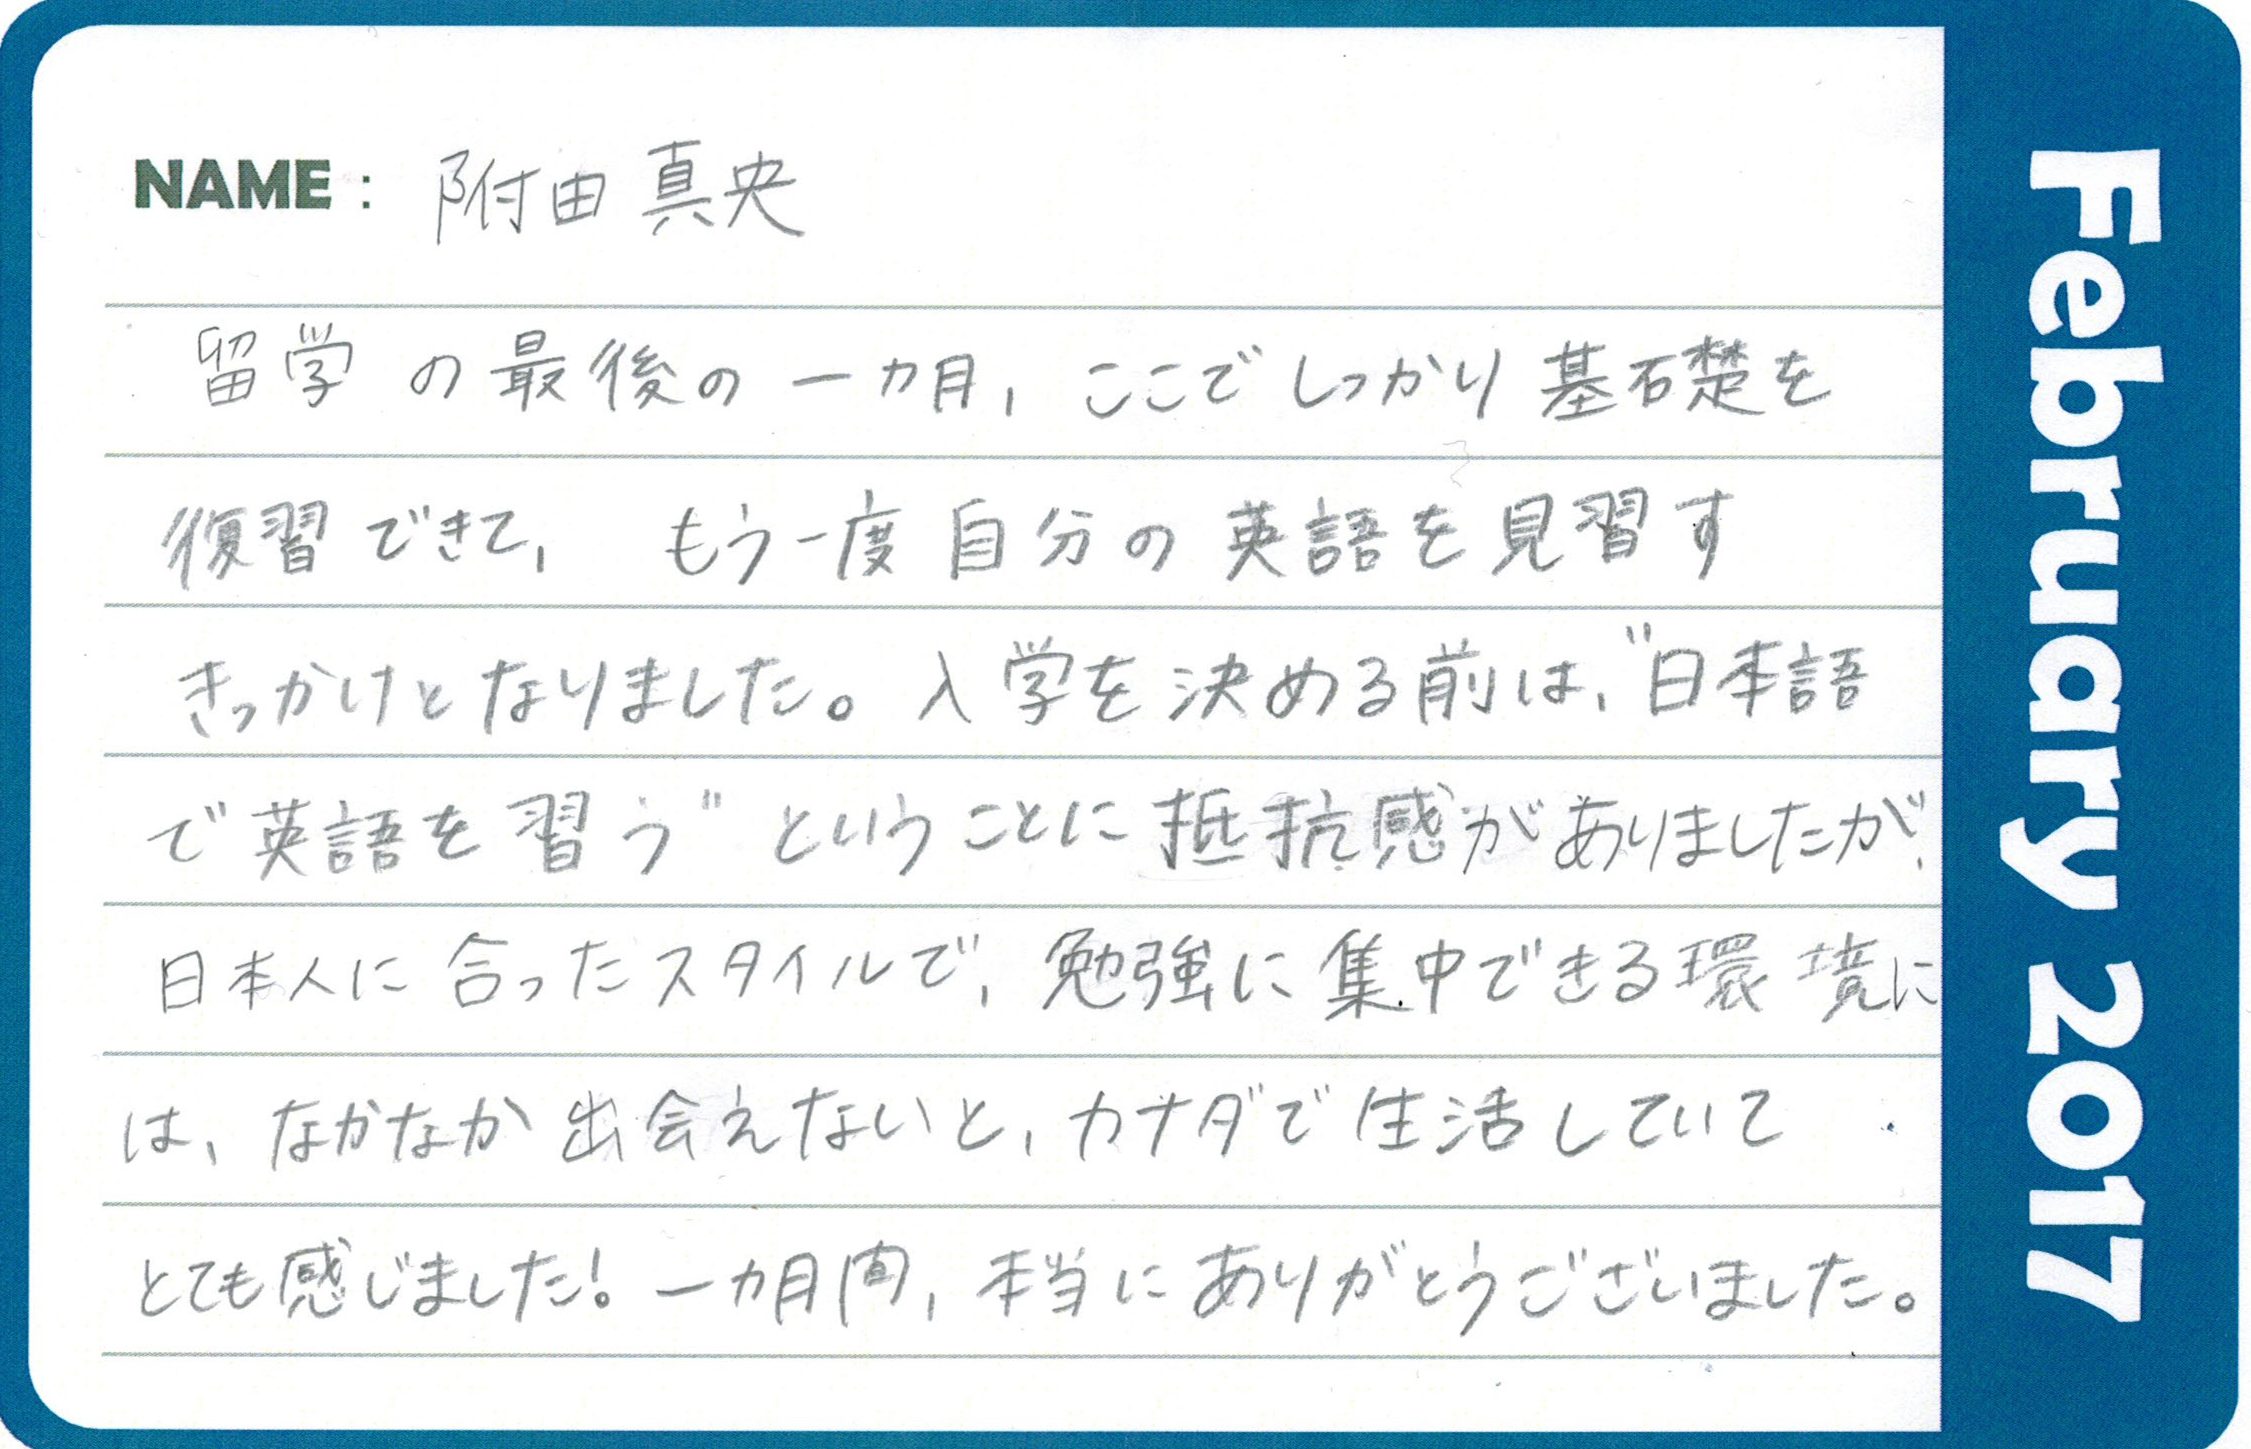 NAME : 附由 真央
留学の最後の一カ月, ここでしっかり基礎を
復習できて, もう一度自分の英語を見習す
きっかけとなりました。入学を決める前は、"日本語
で英語を習う"ということに抵抗感がありましたが、
日本人に合ったスタイルで, 勉強に集中できる環境に
は, なかなか出会えないと, カナダで生活していて
とても感じました! 一カ月間, 本当にありがとうございました。
February 2017